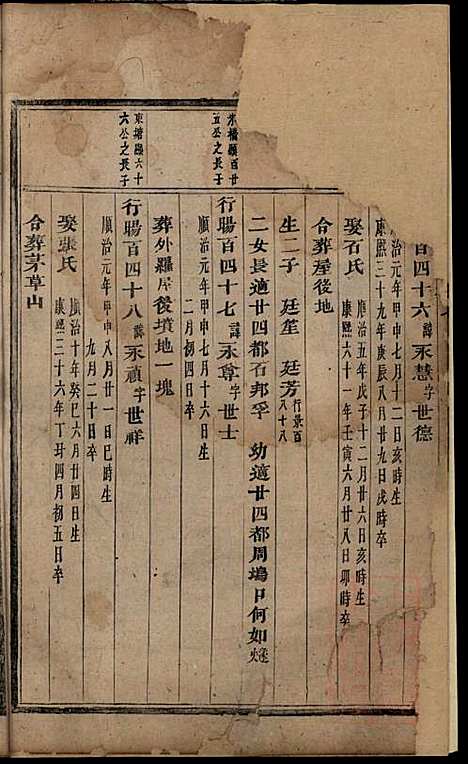 百四十六諱永慧字世德
治元年甲申七月十二日亥時生
康熙三十九年庚辰八月廿九日戌時卒
娶石氏
順治五年戊子十二月廿六日亥時生
康熙六十一年壬寅六月廿八日卯時卒
合葬屋後地
生二子 廷笙 廷芳行景百八十八
二女長適廿四都石邦孚 幼適廿四都周塢口何如
米橋顯百廿五公之長子
行暘百四十七諱永尊字世士
順治元年甲申七月十六日亥時生
二月初四日卒
葬外羅屋後墳地一塊
東塘顯六十六公之長子
行暘百四十八諱永禎字世祥
順治元年甲申八月廿一日巳時生
九月二十日卒
娶張氏
順治十年癸巳六月廿四日生
康熙三十六年丁丑四月初五日卒
合葬茅草山